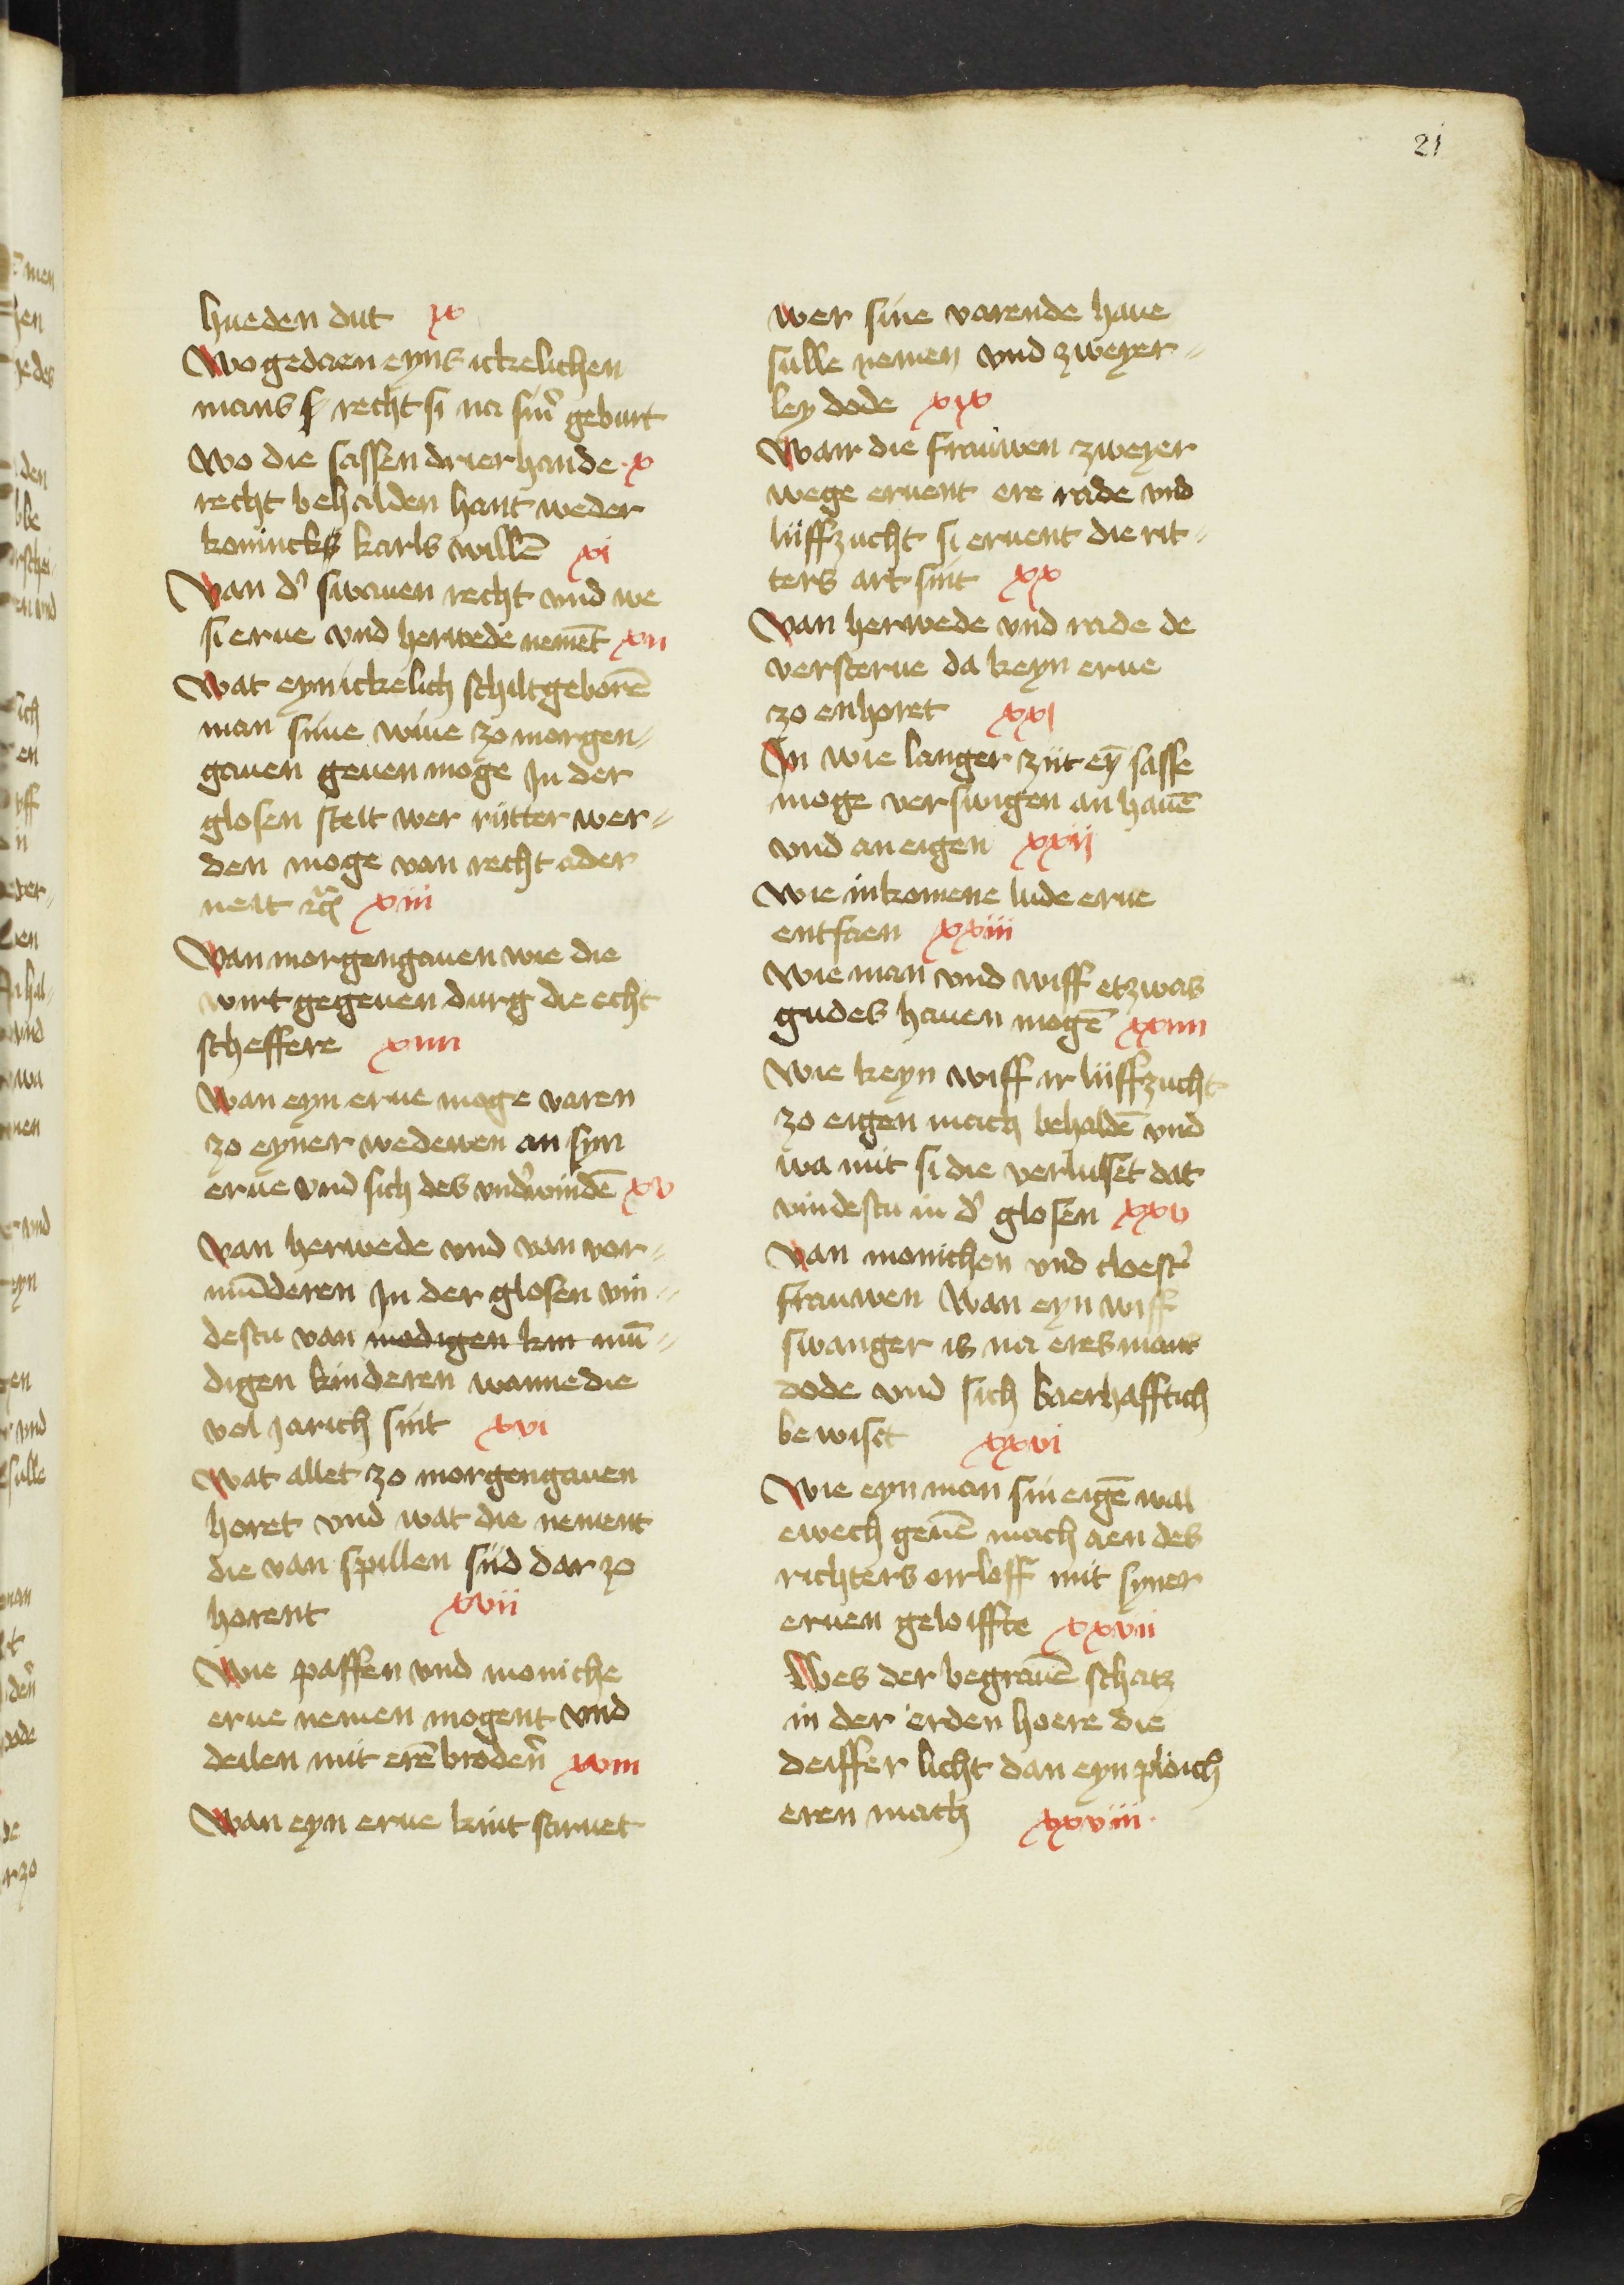 21
hueden dut ix
Wo gedaen eyns ickelichen
mans s recht si na sinr̉ geburt
wo die sassen drierhande · x
recht behalden hant weder
konincks karls willē xi
Van d̉ swauen recht vnd we
si erue vnd herwede nemēt xii
Wat eyn ickelich schiltgeborē
man sine wiue zo morgen-
gauen geuen moge In der
glosen steit wer ritter wer-
den moge van recht ader
neit xiii
Van morgengauen wie die
wirt gegeuen durg die echt
scheffere xiiii
Wan eyn erue moge varen
zo eyner wedewen an syn
erue vnd sich des vnd̉windē xv
Van herwede vnd van vor-
mūderen In der glosen vin-
destu van modigen kin mū-
digen kinderen wanne die
vol jarich sint xvi
Wat allet zo morgengauen
horet vnd wat die nement
die van spillen siid dar zo
horent xvii
Wie paffen vnd moniche
erue nemen mogent vnd
deilen mit erē broden̉ xviii
Wan eyn erue kint steruet
wer sine varende haue
sulle nemen vnd zweyer-
ley dode xix
Wair die frauwen zweyer
wege eruent ere rade vnd
liiffzucht si eruent die rit-
ters art sint xx
Van herwede vnd rade de
versterue da keyn erue
zo enhoret xxi
In wie langer ziit eȳ sasse
moge verswigen an hauē
vnd an eigen xxij
Wie inkomene lude erue
entfaen xxiii
Wie man vnd wiff etzwas
gudes hauen mogē xxiiii
Wie keyn wiff ir liiffzucht
zo eigen mach behaldē vnd
wa mit si die verluiset dat
vindestu in d̉ glosen xxv
Van monichen vnd cloest̉
frauwen Wan eyn wiff
swanger is na eres mans
dode vnd sich baerhafftich
bewiset xxvi
Wie eyn man sin eigē wal
ewech geuē mach aen des
richters orloff mit syner
eruen geloiffte xxvii
Wes der begrauē schatz
in der erden hoere die
deiffer licht dan eyn ploich
eren mach xxviii ·